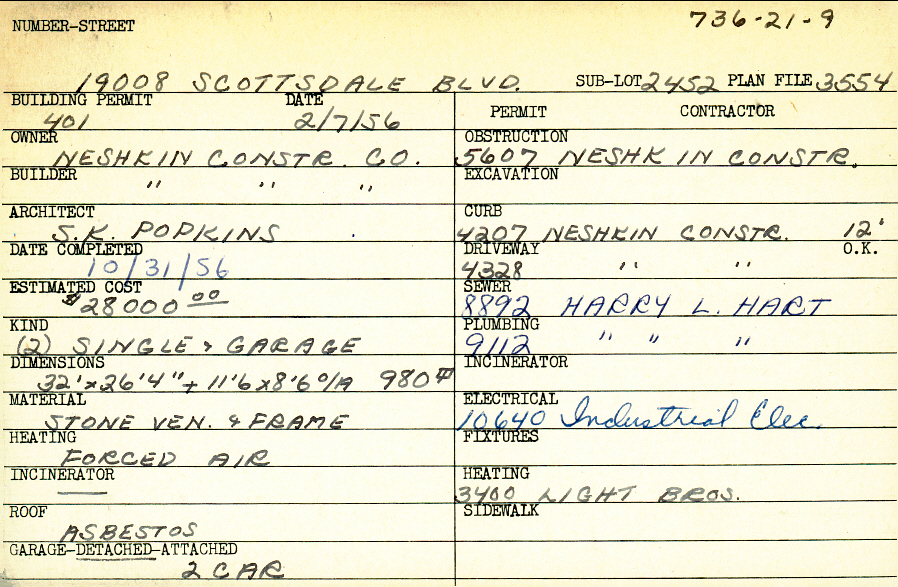 736-21-9
NUMBER-STREET
19008 SCOTTSDALE BLVD. SUB-LOT 2452 PLAN FILE 3554
BUILDING PERMIT DATE
401 2/7/56
OWNER
NESHKIN CONSTR. CO.
BUILDER
" " "
ARCHITECT
S.K. POPKINS
DATE COMPLETED
10/31/56
ESTIMATED COST
$28000 00
KIND
(2) SINGLE & GARAGE
DIMENSIONS
32'x26'4"+ 11'6x8'6 O/A 980#
MATERIAL
STONE VEN. & FRAME
HEATING
FORCED AIR
INCINERATOR
—
ROOF
ASBESTOS
GARAGE-DETACHED-ATTACHED
2 CAR
PERMIT CONTRACTOR
OBSTRUCTION
5607 NESHKIN CONSTR.
EXCAVATION
CURB
4207 NESHKIN CONSTR. 12'
DRIVEWAY O.K.
4328 " "
SEWER
8892 HARRY L. HART
PLUMBING
9112 " " "
INCINERATOR
ELECTRICAL
10640 Industrial Elec.
FIXTURES
HEATING
3400 LIGHT BROS.
SIDEWALK